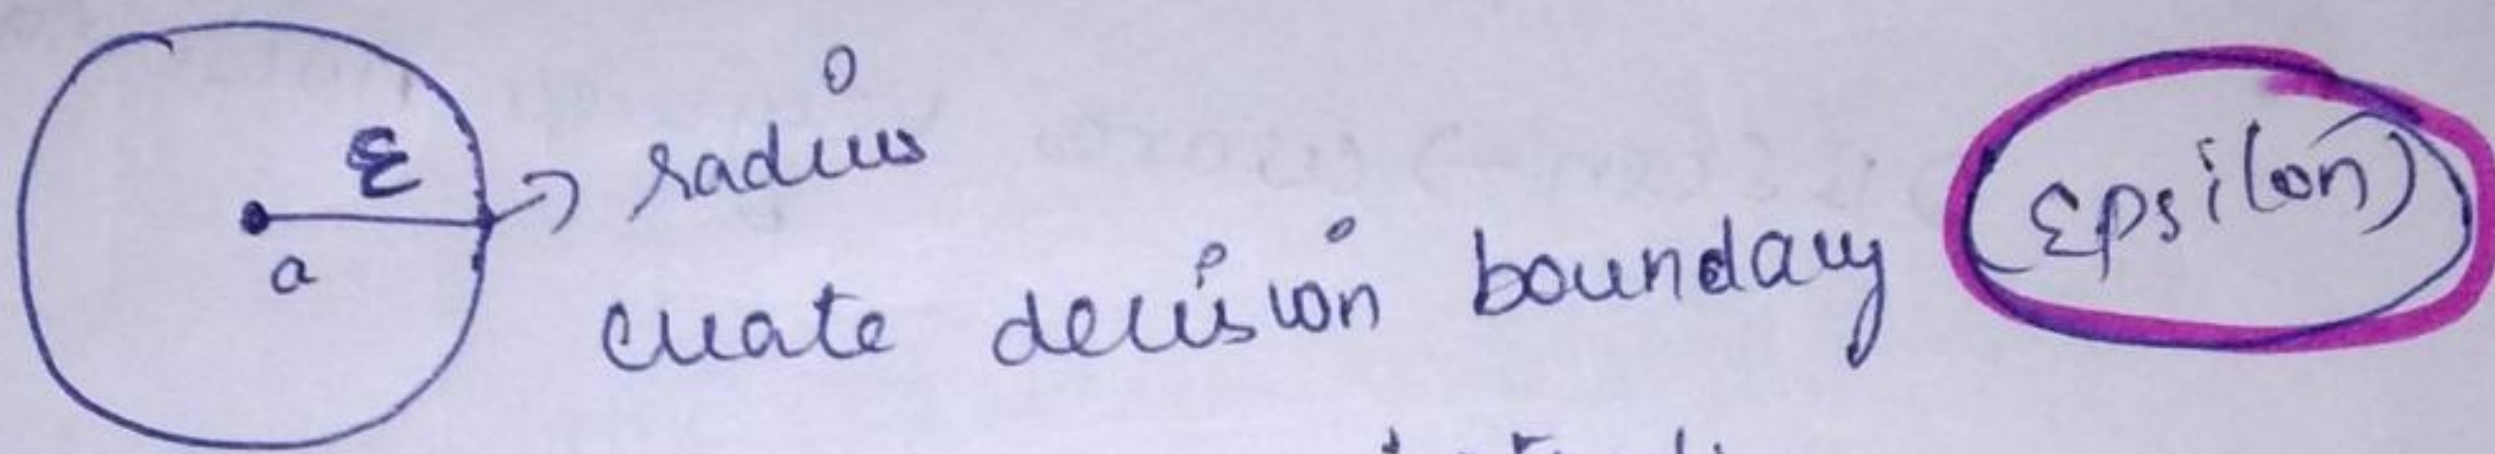 ε
a
→ radius
create decision boundary (Epsilon)